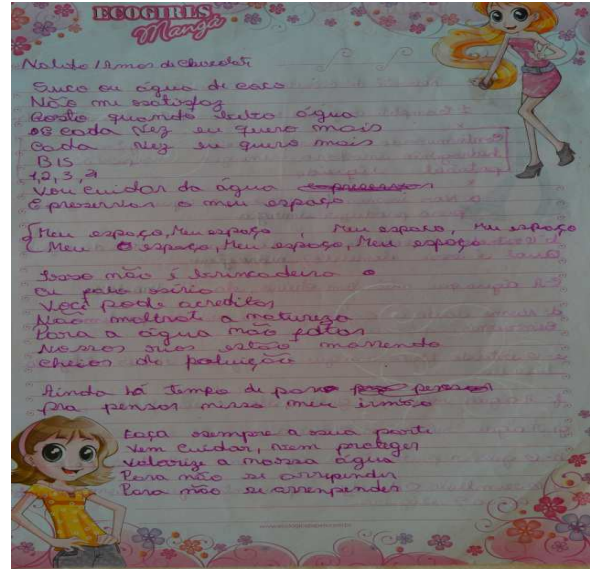 ECOGIRLS
Mangá
Naldo / Amor de Chocolate
Suco ou água de coco
Não me satisfaz
Gosto quando bebo água
e cada vez eu quero mais
cada vez eu quero mais
BIS
1, 2, 3, 4
Vou cuidar da água
E preservar o meu espaço
Meu espaço, Meu espaço, Meu espaço, Meu espaço
Meu espaço, Meu espaço, Meu espaço
Isso não é brincadeira
eu falo sério
Você pode acreditar
Não maltrate a natureza
Para a água não faltar
Nossos rios estão morrendo
cheios de poluição
Ainda há tempo de para
pra pensar nisso meu irmão
Faça sempre a sua parte
Vem cuidar, vem proteger
Valorize a nossa água
Para não se arrepender
Para não se arrenpender